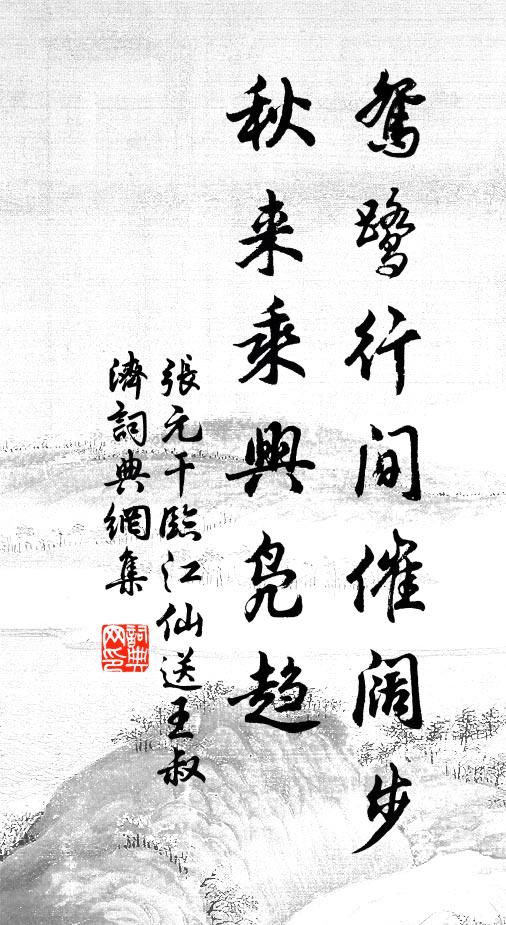 鴛鷺行間催闊步
秋来乘興凫趨
張元干臨江仙送王叔
濟詞典網集
詞典
网印